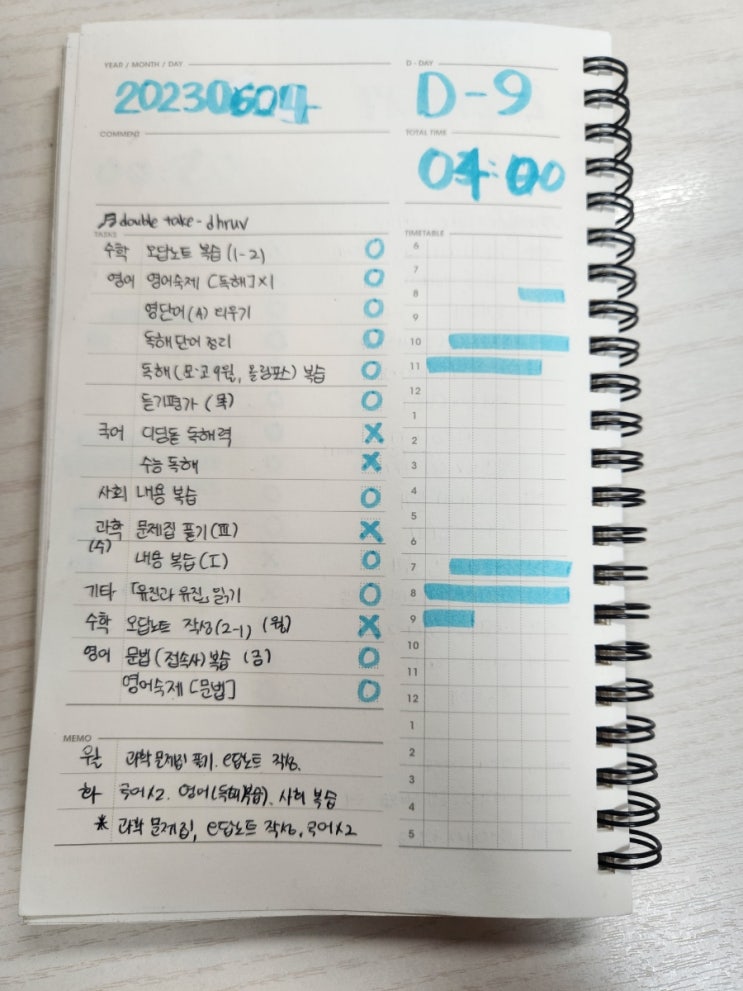 YEAR / MONTH / DAY
20230604
D - DAY
D-9
COMMENT
TOTAL TIME
04:00
♬ double take - dhruv
TASKS
수학 오답노트 복습 (1-2) O
영어 영어숙제 [독해]×1 O
영단어(A) 외우기 O
독해단어 정리 O
독해(모·고9월, 올림포스) 복습 O
듣기평가 (목) O
국어 디딤돌 독해력 X
수능 독해 X
사회 내용 복습 O
과학 문제집 풀기(Ⅲ) X
(수) 내용 복습(Ⅰ) O
기타 「유진과 유진」 읽기 O
수학 오답노트 작성(2-1) (월) X
영어 문법(접속사) 복습 (금) O
영어숙제 [문법] O
TIMETABLE
6
7
8
9
10
11
12
1
2
3
4
5
6
7
8
9
10
11
12
1
2
3
4
5
MEMO
월 과학 문제집 풀기. 오답노트 작성.
화 국어×2. 영어(독해복습). 사회 복습
* 과학 문제집, 오답노트 작성, 국어×2